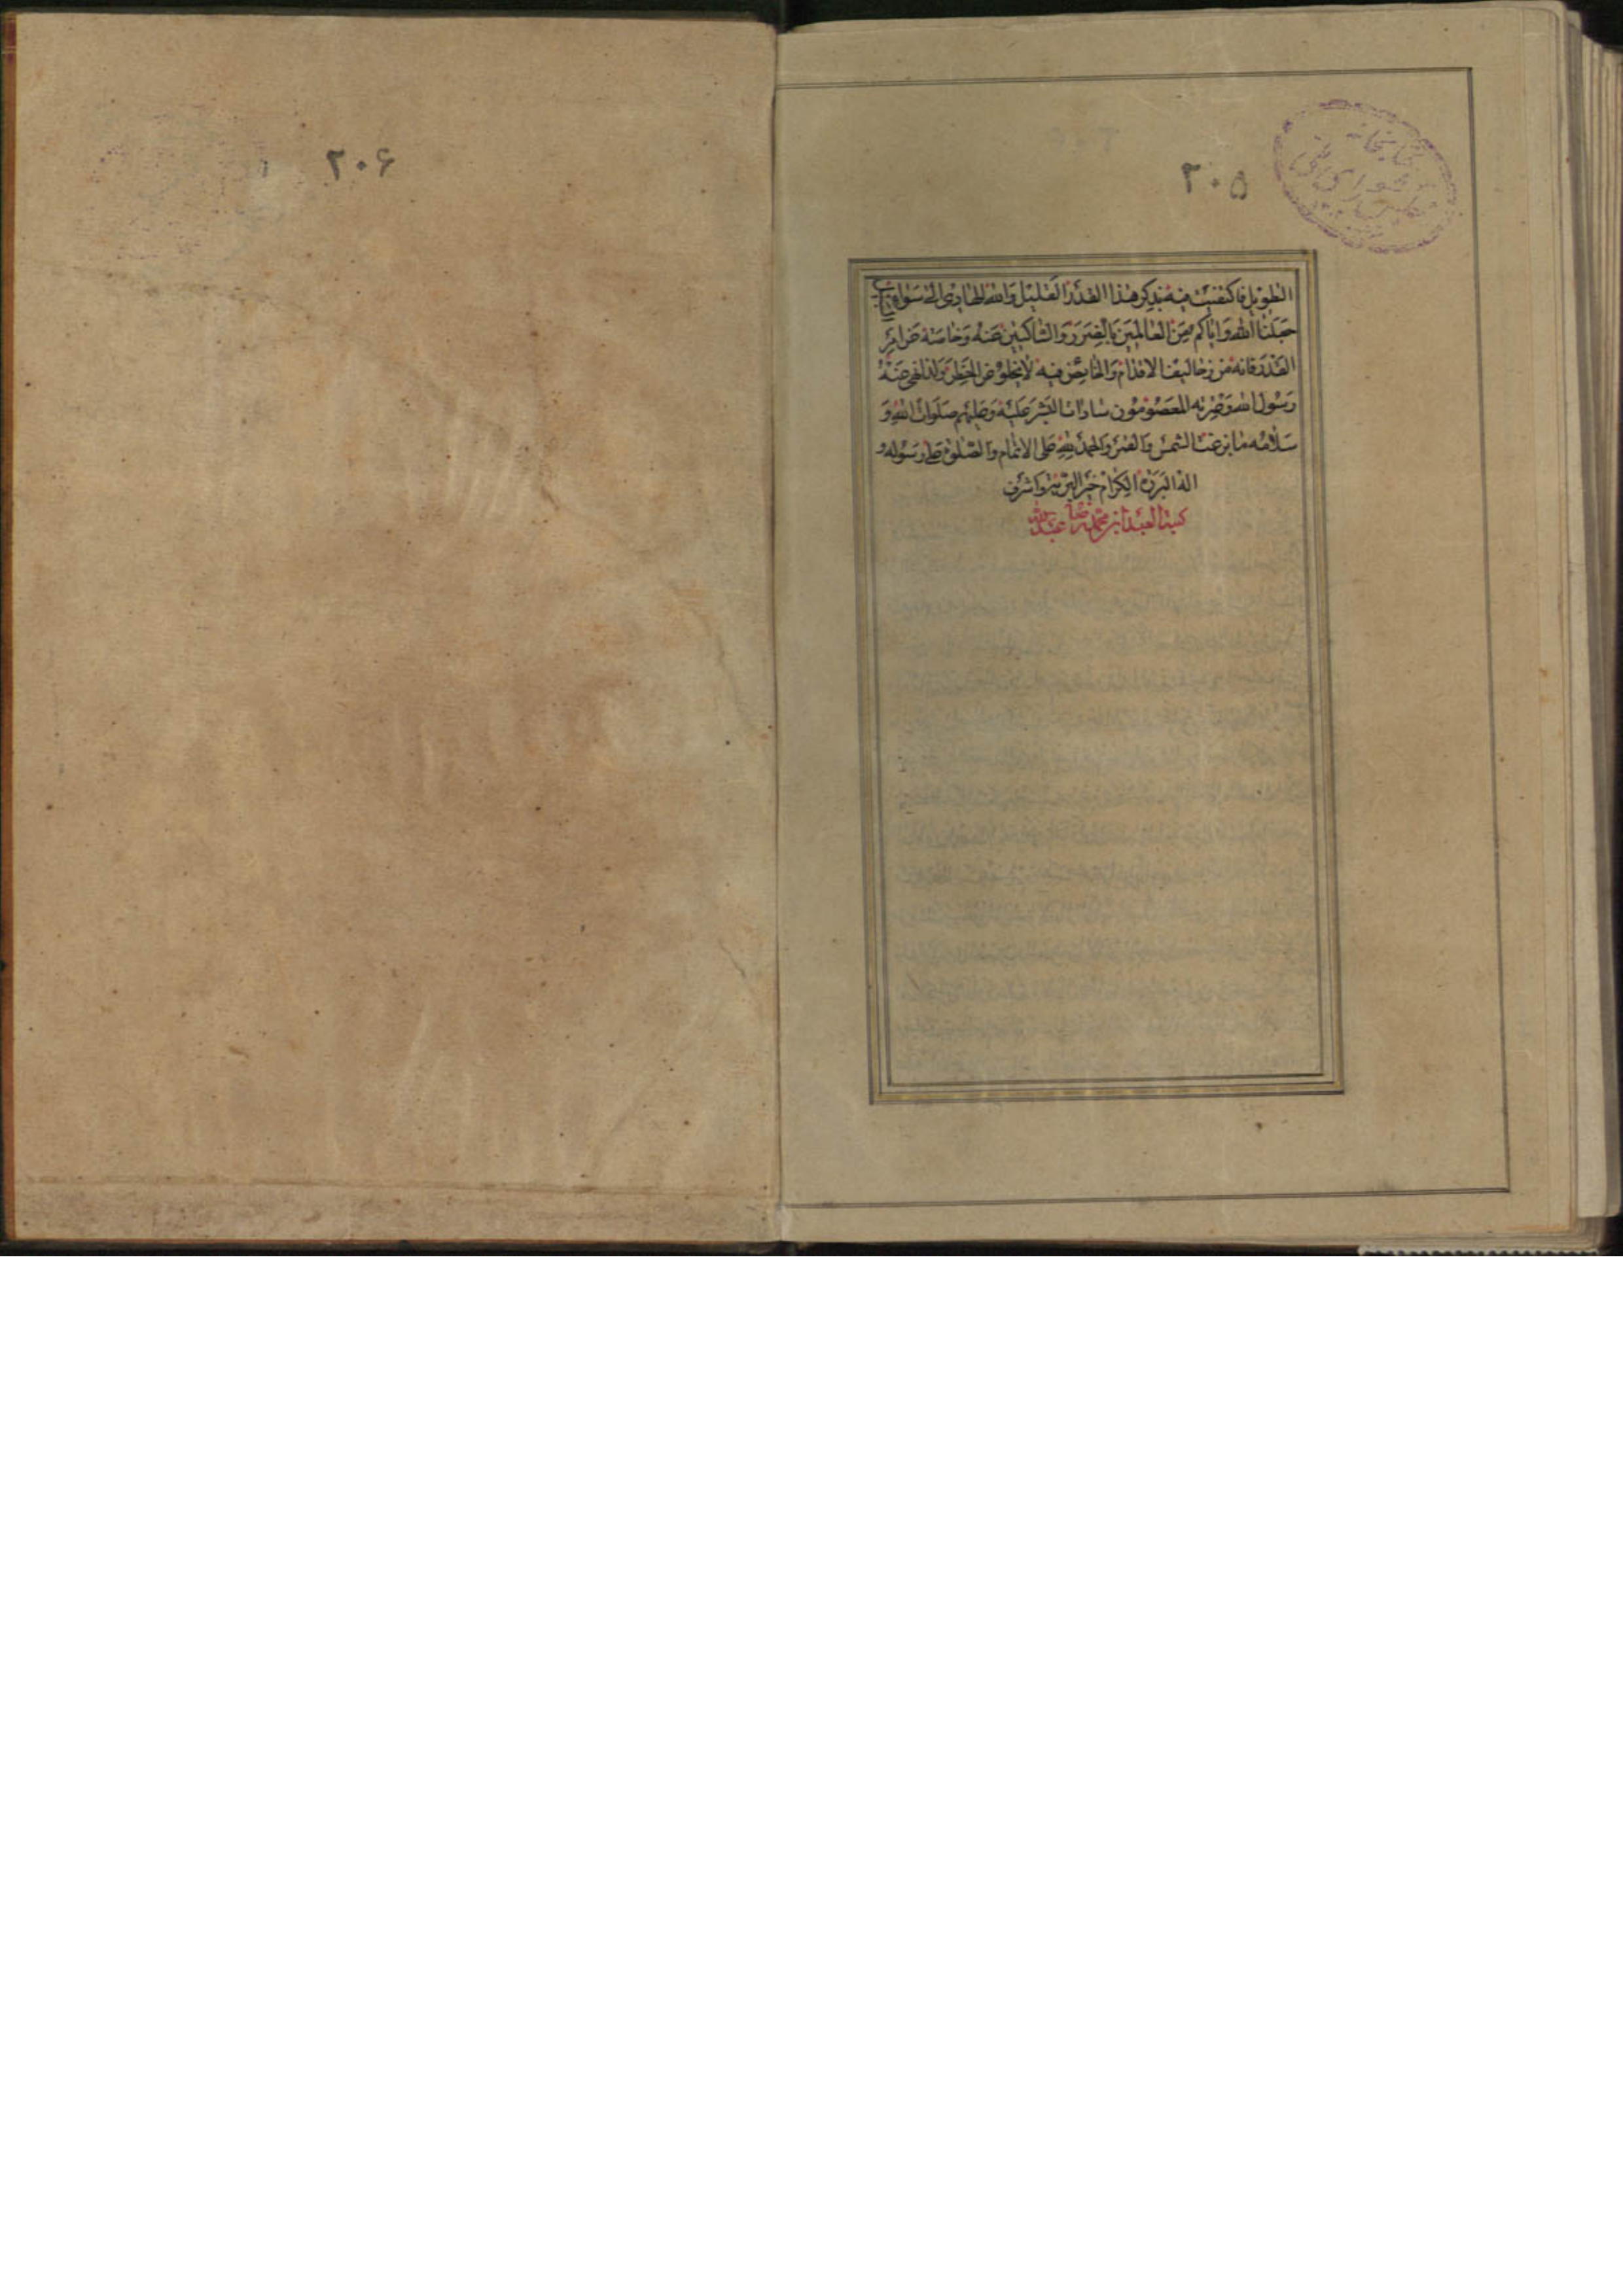 ۲۰۵
کتابخانه
مجلس شورای ملی
الطویل فاکتفیت فیه بذکر هذا القدر القلیل والله الهادی الی سواء
جعلنا الله وایاکم من العالمین بالضرر والساکتین عنه وخاصة عن امر
القدر فانه من مزالیق الاقدام والخایض فیه لا یخلو من الخطر ولذا نهی عنه
رسول الله وعترته المعصومون سادات البشر علیه وعلیهم صلوات الله و
سلامه ما بزغت الشمس والقمر والحمد لله علی الاتمام والصلوة علی رسوله و
اله البررة الکرام خیر البریة واشرف
کتبه العبد ابن محمد رضا عبدالله
۲۰۶